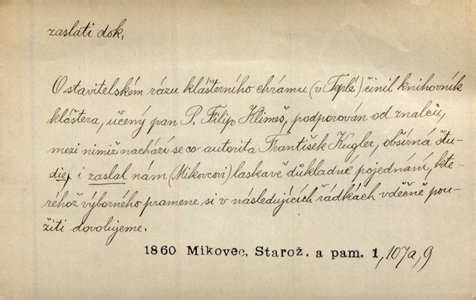 zaslati dok.
O stavitelském rázu klášterního chrámu (v Teplé) činil knihovník
kláštera, učený pan P. Filip Klimeš, podporován od znalců,
mezi nimiž nachází se co autorita František Kugler, obšírná stu-
dia i zaslal nám (Mikovcovi) laskavě důkladné pojednání, kte-
réhož výborného pramene si v následujících řádkách vděčně pou-
žíti dovolujeme.
1860 Mikovec, Starož. a pam. 1, 107a, 9